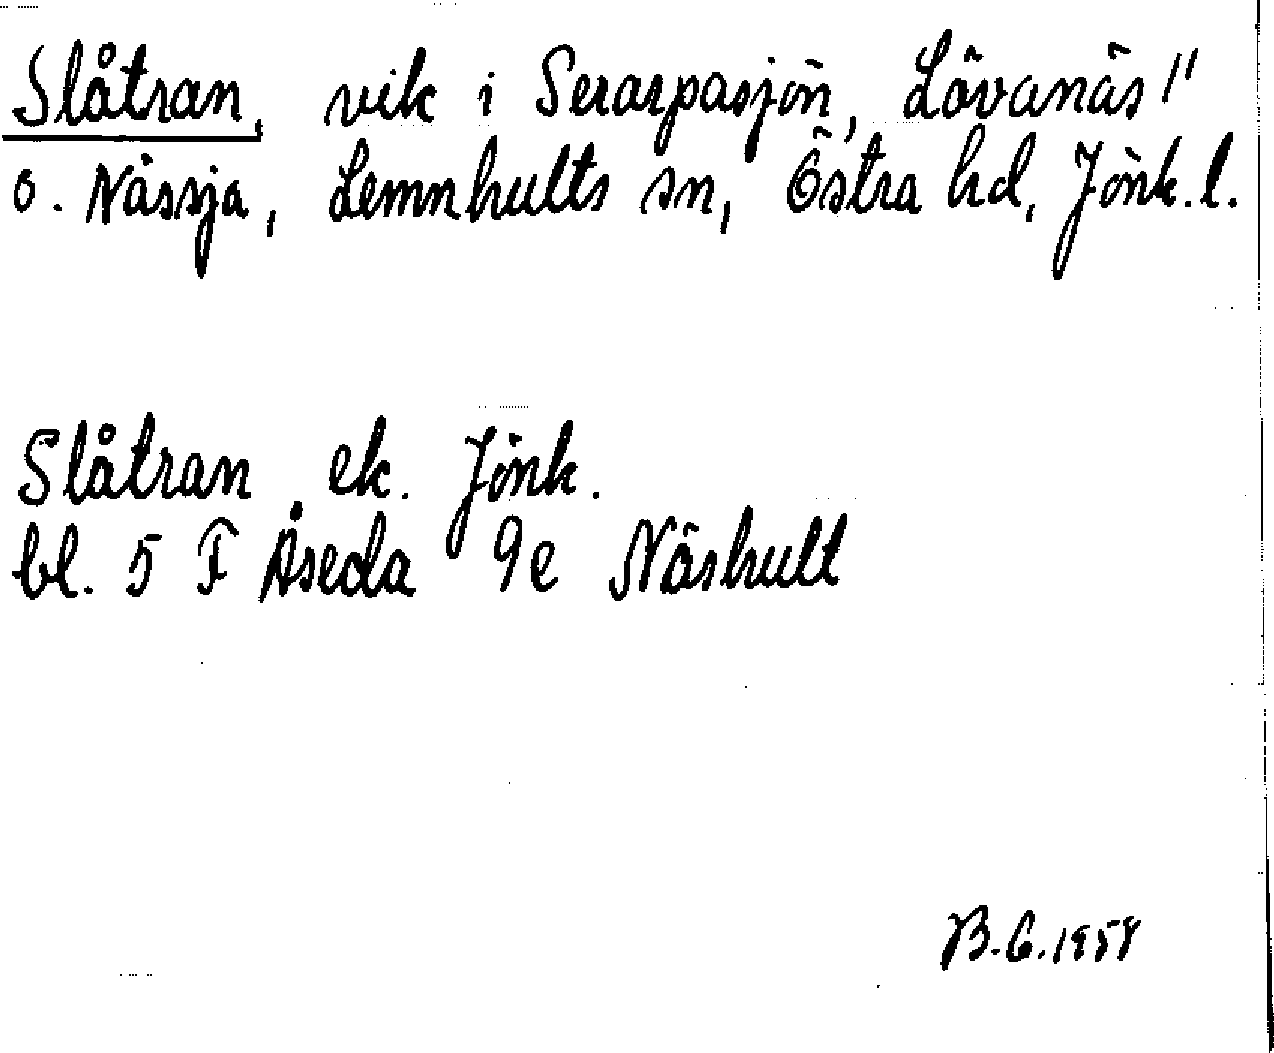 Slåtran, vik i Serarpasjön, Lövanäs 1/1
o. Nässja, Lemnhults sn, Östra hd, Jönk. l.
Slåtran ek. Jönk.
bl. 5 F Åseda 9e Näshult
B.G. 1958